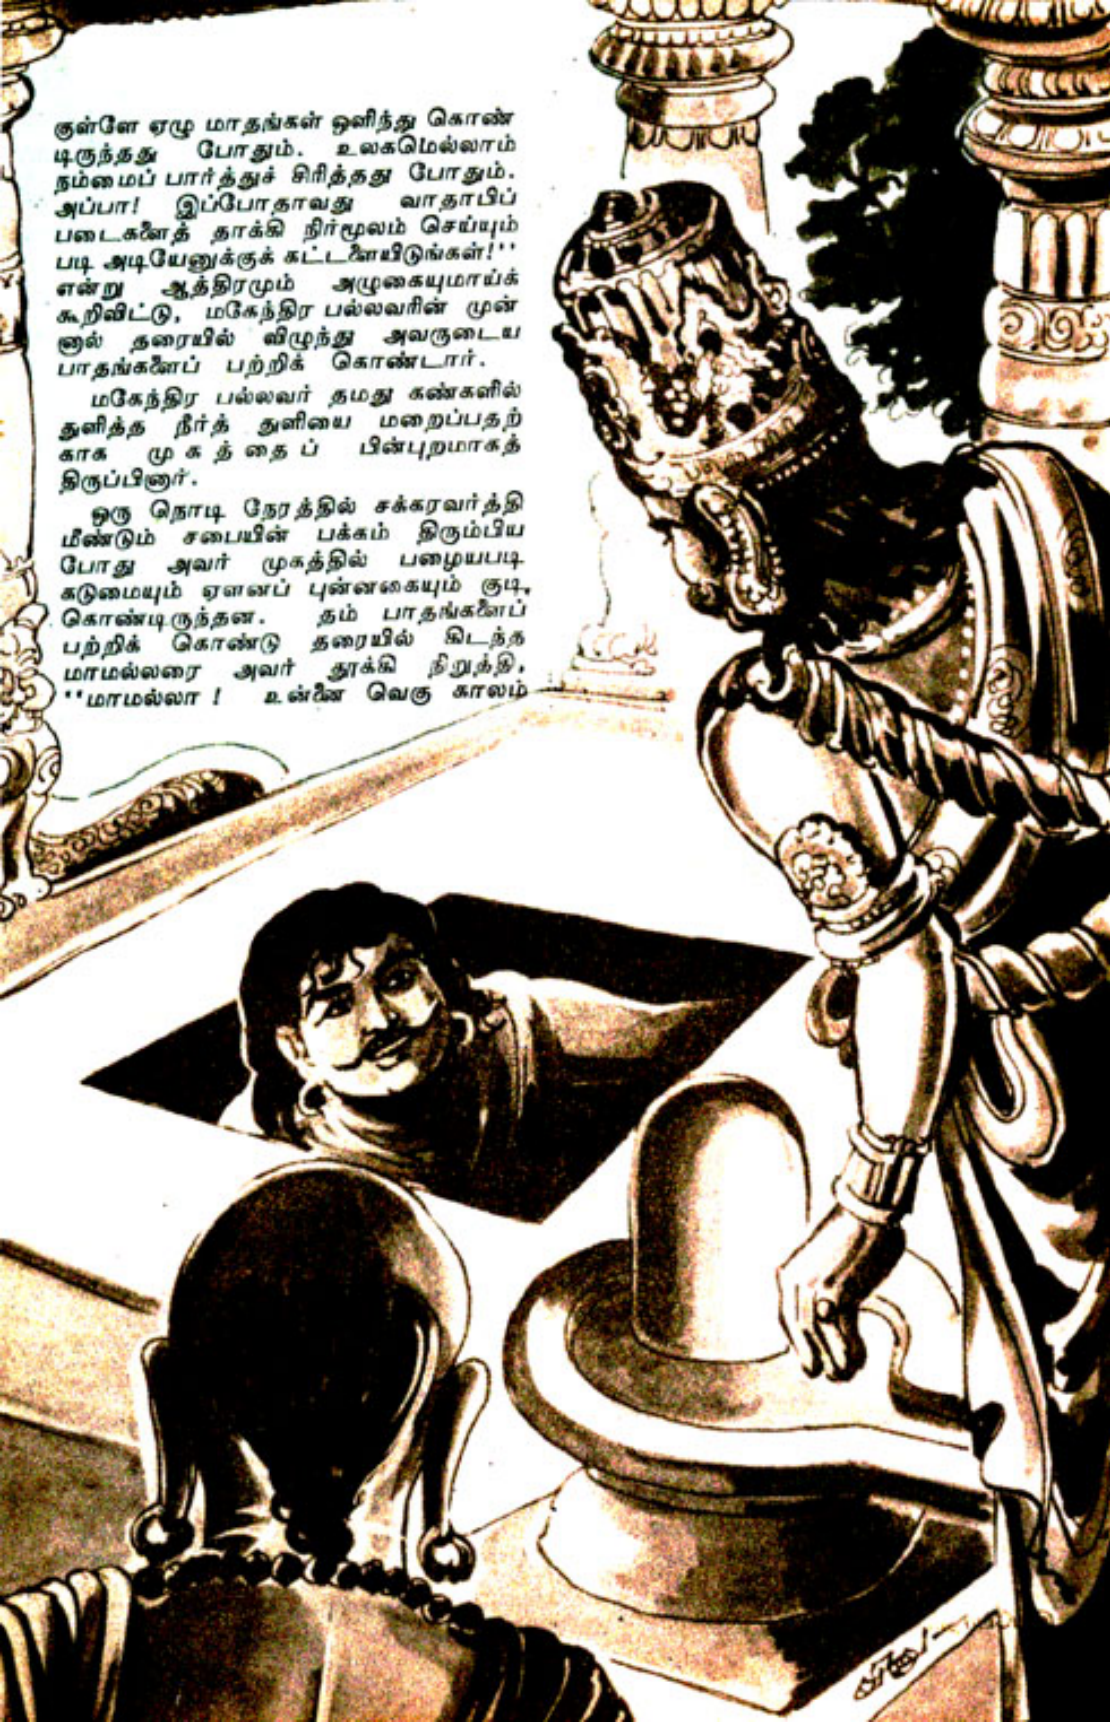 குள்ளே ஏழு மாதங்கள் ஒளிந்து கொண்
டிருந்தது போதும். உலகமெல்லாம்
நம்மைப் பார்த்துச் சிரித்தது போதும்.
அப்பா! இப்போதாவது வாதாபிப்
படைகளைத் தாக்கி நிர்மூலம் செய்யும்
படி அடியேனுக்குக் கட்டளையிடுங்கள்!''
என்று ஆத்திரமும் அழுகையுமாய்க்
கூறிவிட்டு, மகேந்திர பல்லவரின் முன்
னால் தரையில் விழுந்து அவருடைய
பாதங்களைப் பற்றிக் கொண்டார்.
மகேந்திர பல்லவர் தமது கண்களில்
துளித்த நீர்த் துளியை மறைப்பதற்
காக முகத்தைப் பின்புறமாகத்
திருப்பினார்.
ஒரு நொடி நேரத்தில் சக்கரவர்த்தி
மீண்டும் சபையின் பக்கம் திரும்பிய
போது அவர் முகத்தில் பழையபடி
கடுமையும் ஏளனப் புன்னகையும் குடி
கொண்டிருந்தன. தம் பாதங்களைப்
பற்றிக் கொண்டு தரையில் கிடந்த
மாமல்லரை அவர் தூக்கி நிறுத்தி,
''மாமல்லா! உன்னை வெகு காலம்